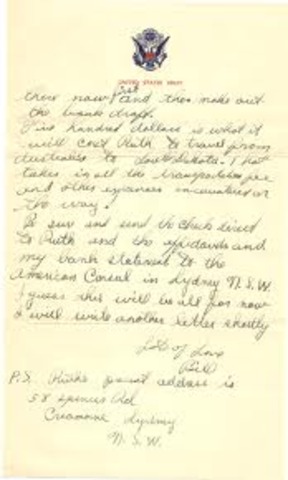 UNITED STATES NAVY
there now first and then make out
the bank draft.
Five hundred dollars is what it
will cost Ruth to travel from
Australia to South Dakota. That
takes in all the transportation fee
and other expenses encountered on
the way.
Be sure and send the check direct
to Ruth and the affidavits and
my bank statement to the
American Consul in Sydney N.S.W.
I guess this will be all for now
I will write another letter shortly
Lots of Love
Bill
P.S. Ruths postal address is
58 Spencer Rd
Cremorne, Sydney
N.S.W.